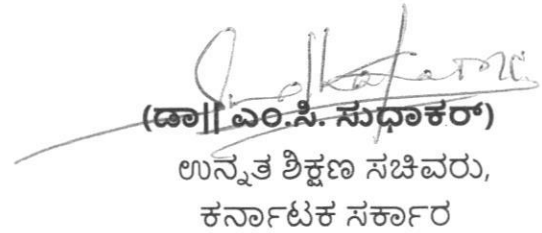 (ಡಾ|| ಎಂ.ಸಿ. ಸುಧಾಕರ್)
ಉನ್ನತ ಶಿಕ್ಷಣ ಸಚಿವರು,
ಕರ್ನಾಟಕ ಸರ್ಕಾರ